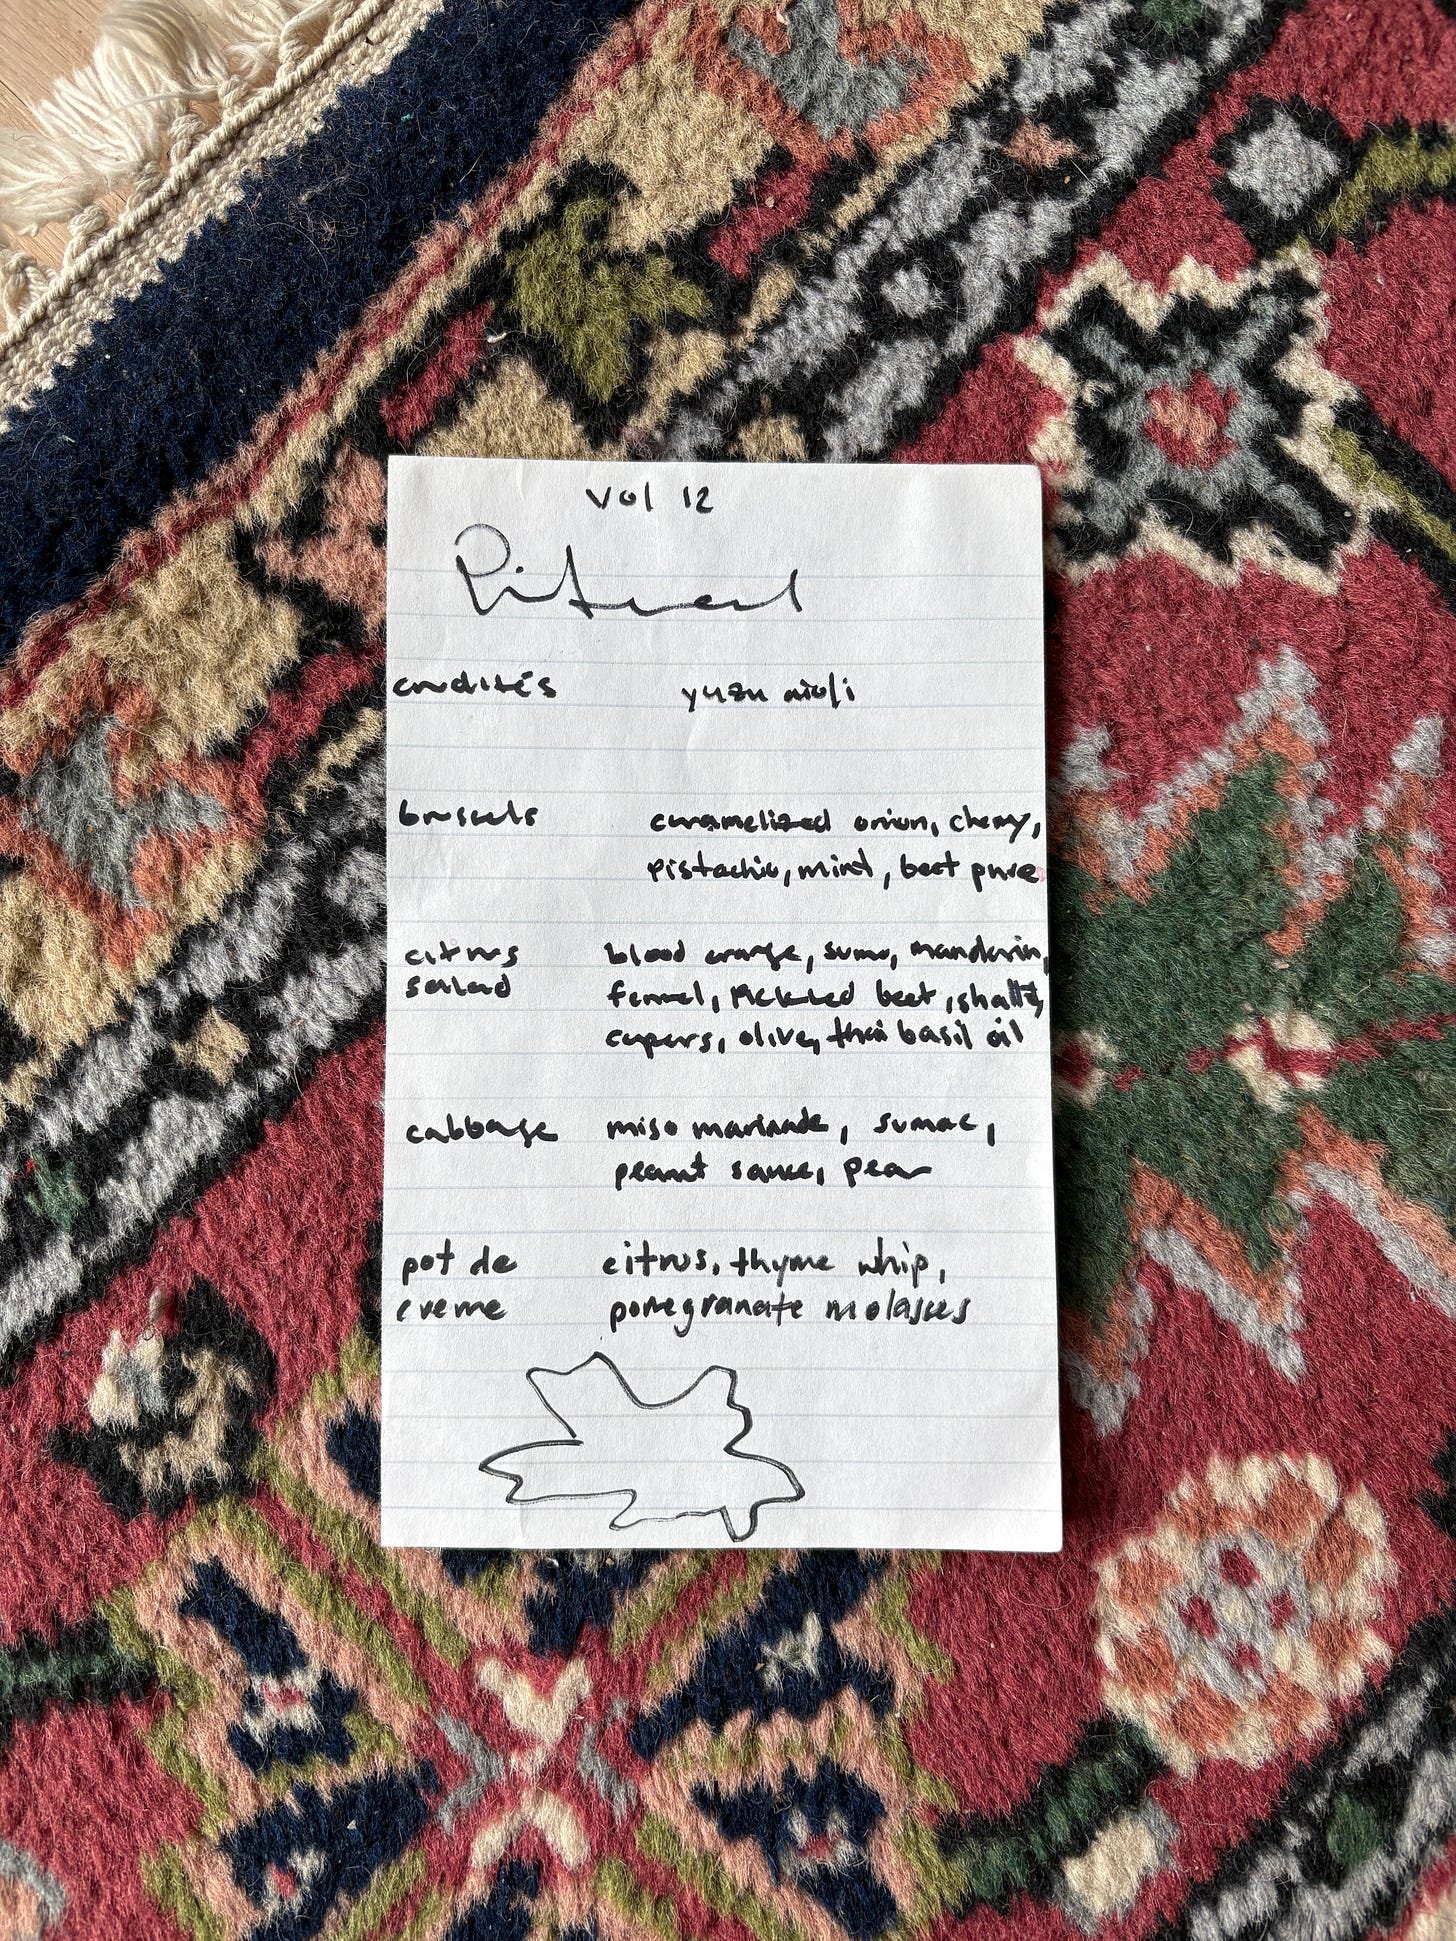 Vol 12
Ritual
crudités yuzu aioli
brussels caramelized onion, cherry,
pistachio, mint, beet pure
citrus blood orange, sumo, mandarin,
salad fennel, pickled beet, shallot,
capers, olive, thai basil oil
cabbage miso marinade, sumac,
peanut sauce, pear
pot de citrus, thyme whip,
creme pomegranate molasses